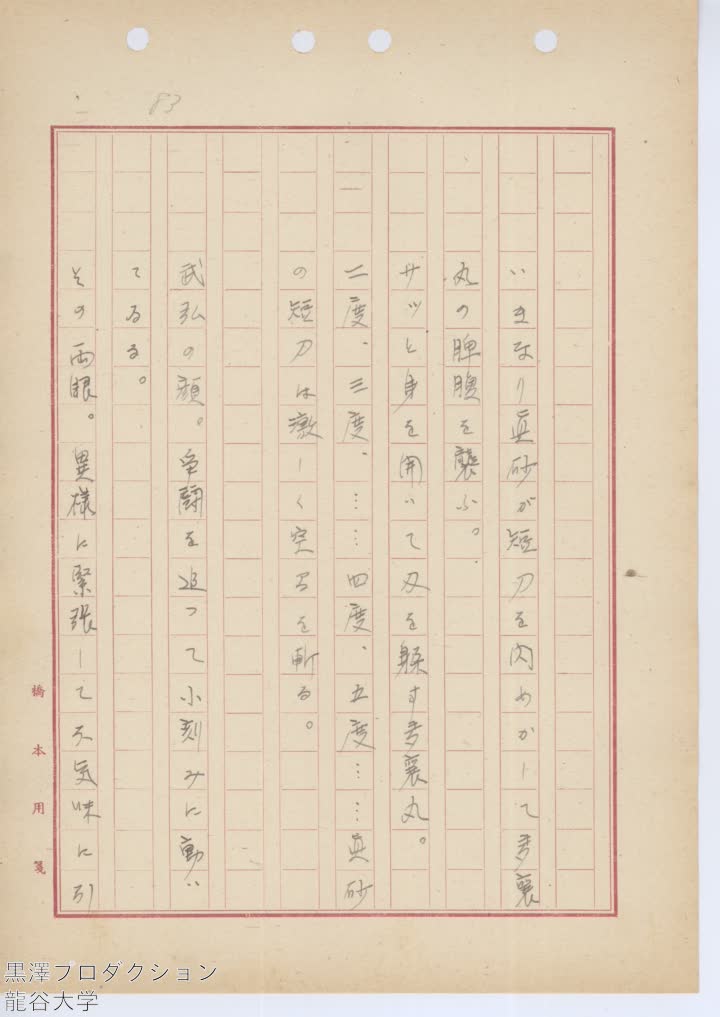 83
いきなり真砂が短刀を閃めかして多襄
丸の脾腹を襲ふ。
サッと身を開いて刃を躱す多襄丸。
二度、三度、……四度、五度……真砂
の短刀は激しく空間を斬る。
武弘の顔。争闘を追つて小刻みに動い
てゐる。
その両眼。異様に緊張して不気味に引
橋本用箋
黒澤プロダクション
龍谷大学